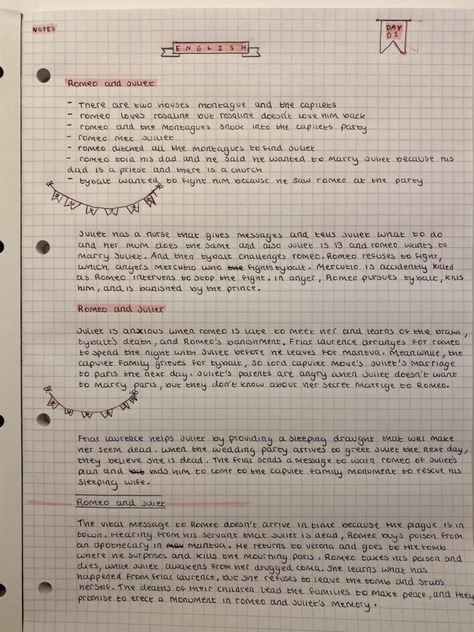 NOTES
DAY
01
ENGLISH
Romeo and Juliet
- There are two houses montague and the capilets
- romeo loves rosaline but rosaline doesn't love him back
- romeo and the montagues snuck into the capilets party
- romeo met Juliet
- romeo ditched all the montagues to find Juliet
- romeo told his dad and he said he wanted to marry Juliet because his
dad is a priest and there is a church
- tybalt wanted to fight him because he saw romeo at the party
Juliet has a nurse that gives messages and tells Juliet what to do
and her mum does the same and also Juliet is 13 and romeo wants to
marry Juliet. And then tybalt challenges romeo. Romeo refuses to fight,
which angers mercutio who fights tybalt. Mercutio is accidently killed
as Romeo intervens to stop the fight. in anger, Romeo pursues tybalt, kills
him, and is banished by the prince.
Romeo and Juliet
Juliet is anxious when romeo is late to meet her and learns of the brawl,
tybalt's death, and Romeo's banishment. Friar laurence arranges for romeo
to spend the night with Juliet before he leaves for mantua. Meanwhile, the
capulet family grieves for tybalt, so Lord capulet move's Juliet's marriage
to paris the next day. Juliet's parents are angry when Juliet doesn't want
to marry paris, but they don't know about her secret marrige to Romeo.
Friar laurence helps Juliet by providing a sleeping draught that will make
her seem dead. when the wedding party arrives to greet Juliet the next day,
they believe she is dead. The friar sends a message to warn romeo of Juliet's
plan and bids him to come to the capulet family monument to rescue his
sleeping wife.
Romeo and Juliet
The vital message to Romeo doesn't arrive in time because the plague is in
town. Hearing from his servant that Juliet is dead, Romeo buys poison from
an apothecary in mantua. He returns to verona and goes to the tomb
where he surprises and kills the mourning paris. Romeo takes his poison and
dies, while Juliet awakens from her drugged coma. She learns what has
happened from friar laurence, but she refuses to leave the tomb and stabs
herself. The deaths of their children lead the families to make peace, and they
promise to erect a monument in romeo and Juliet's memory.